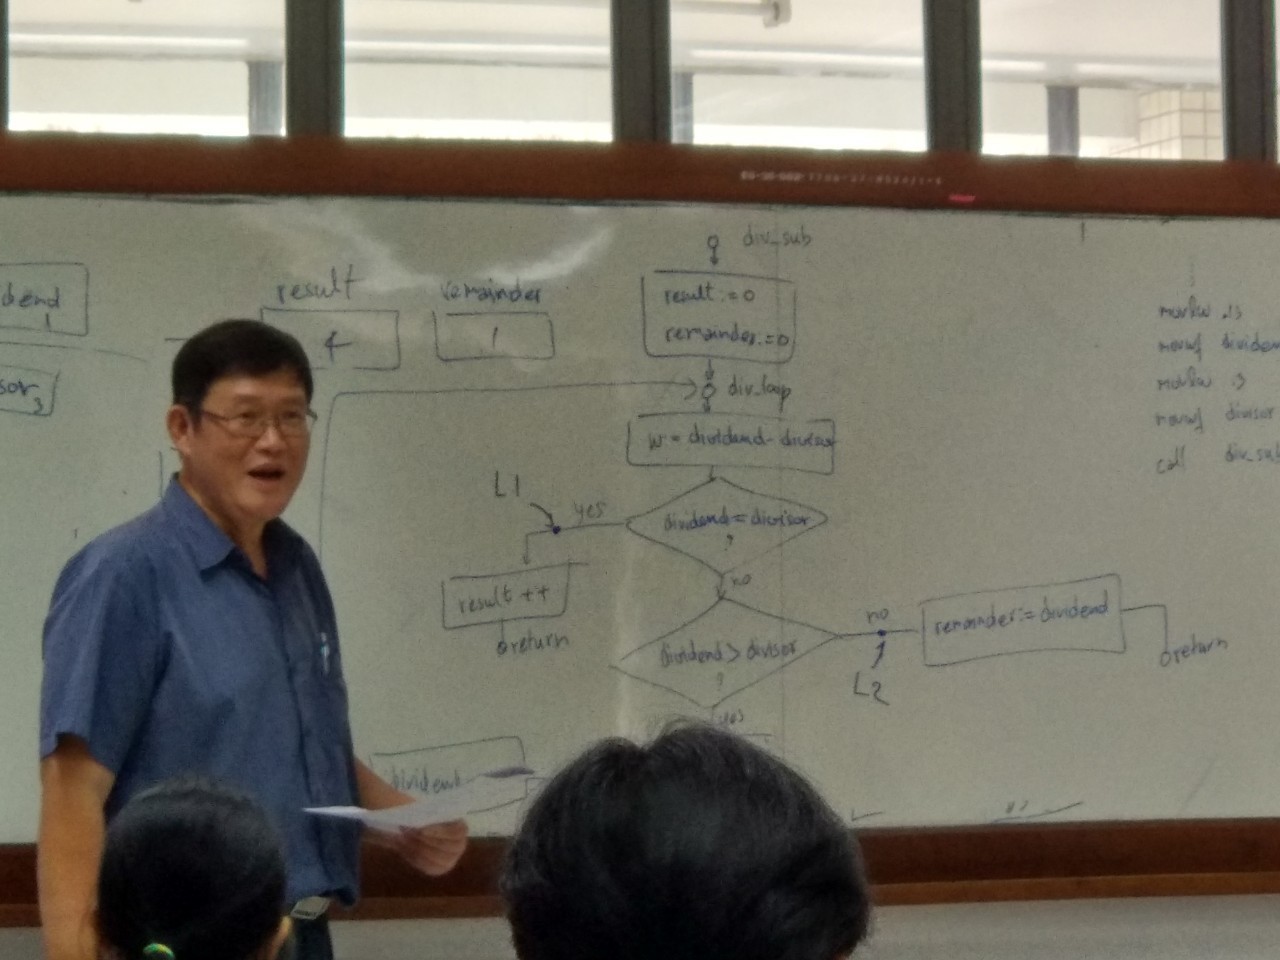 dend
1
sor
3
result
4
remainder
1
div_sub
result := 0
remainder := 0
div_loop
w = dividend - divisor
L1
yes
dividend = divisor
?
no
result ++
return
dividend > divisor
?
no
L2
remainder := dividend
return
yes
dividend
movlw .13
movwf dividen
movlw .3
movwf divisor
call div_sub